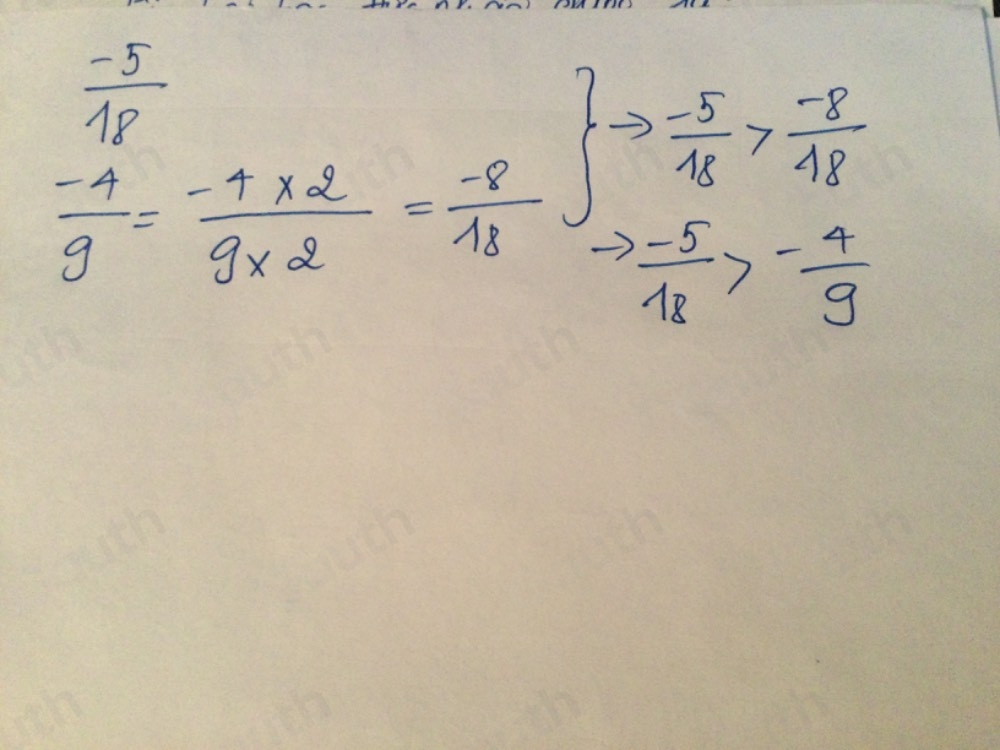 -5/18
-4/9 = -4 x 2/9 x 2 = -8/18 } → -5/18 > -8/18
→ -5/18 > -4/9